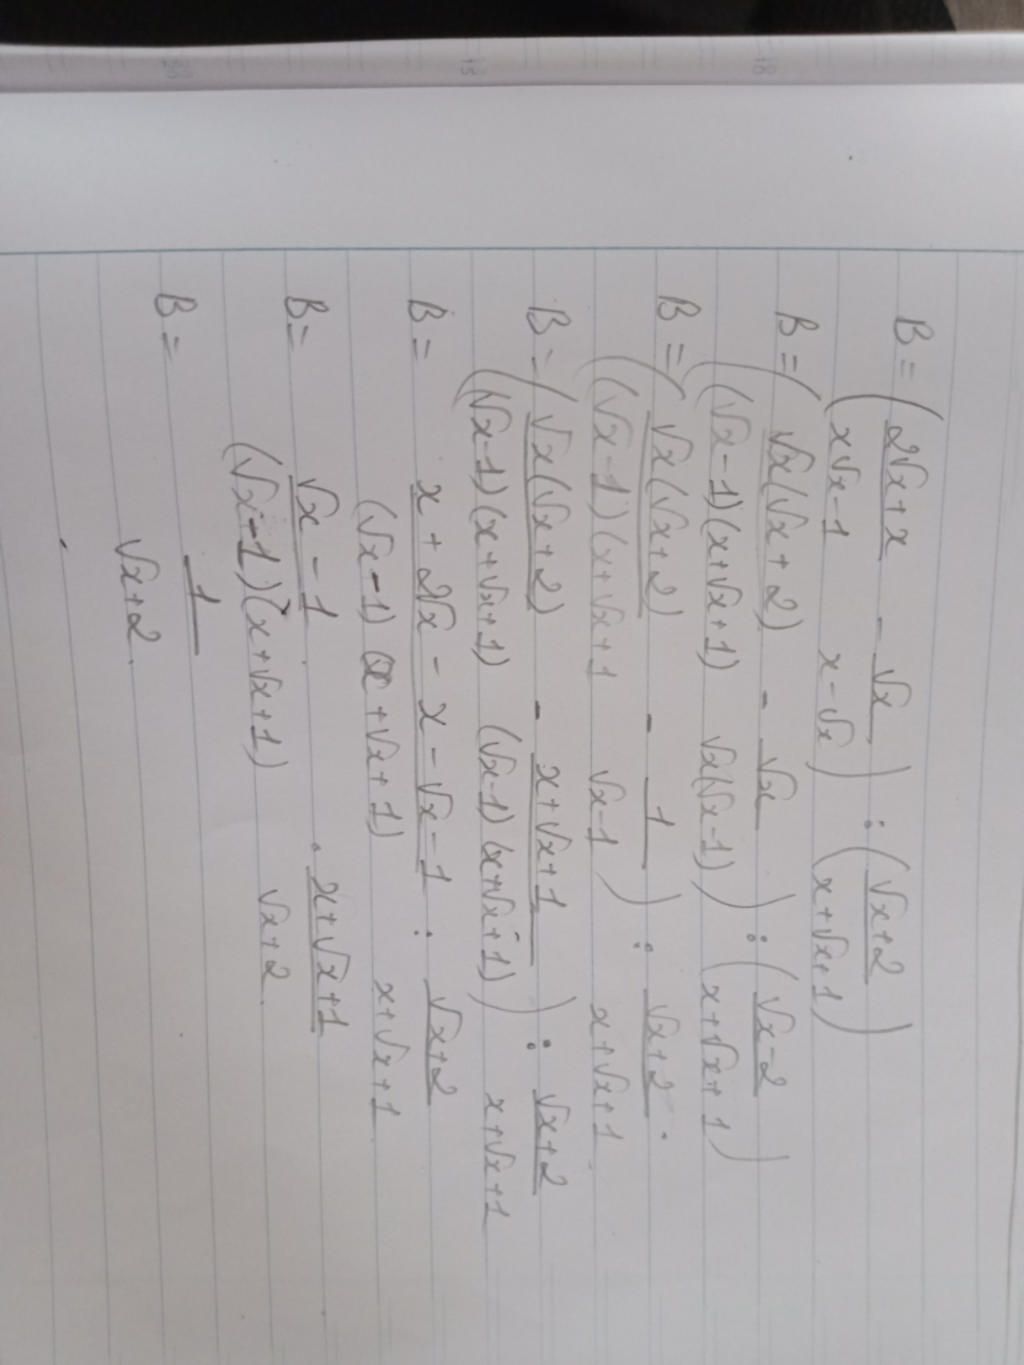 B = ( 2√x+x / x√x-1 - √x / x-√x ) : ( √x+2 / x+√x+1 )
B = ( √x(√x+2) / (√x-1)(x+√x+1) - √x / √x(√x-1) ) : ( √x-2 / x+√x+1 )
B = ( √x(√x+2) / (√x-1)(x+√x+1 - 1 / √x-1 ) : √x+2 / x+√x+1
B = ( √x(√x+2) / (√x-1)(x+√x+1) - x+√x+1 / (√x-1)(x+√x+1) ) : √x+2 / x+√x+1
B = x+2√x-x-√x-1 / (√x-1)(x+√x+1) : √x+2 / x+√x+1
B = √x-1 / (√x-1)(x+√x+1) . x+√x+1 / √x+2
B = 1 / √x+2